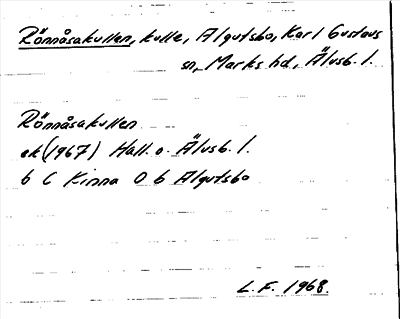 Rönnåsakullen, kulle, Algutsbo, Karl Gustavs
sn, Marks hd, Älvsb. l.
Rönnåsakullen
ek (1967) Hall. o. Älvsb. l.
b C Kinna O b Algutsbo
L.F. 1968.